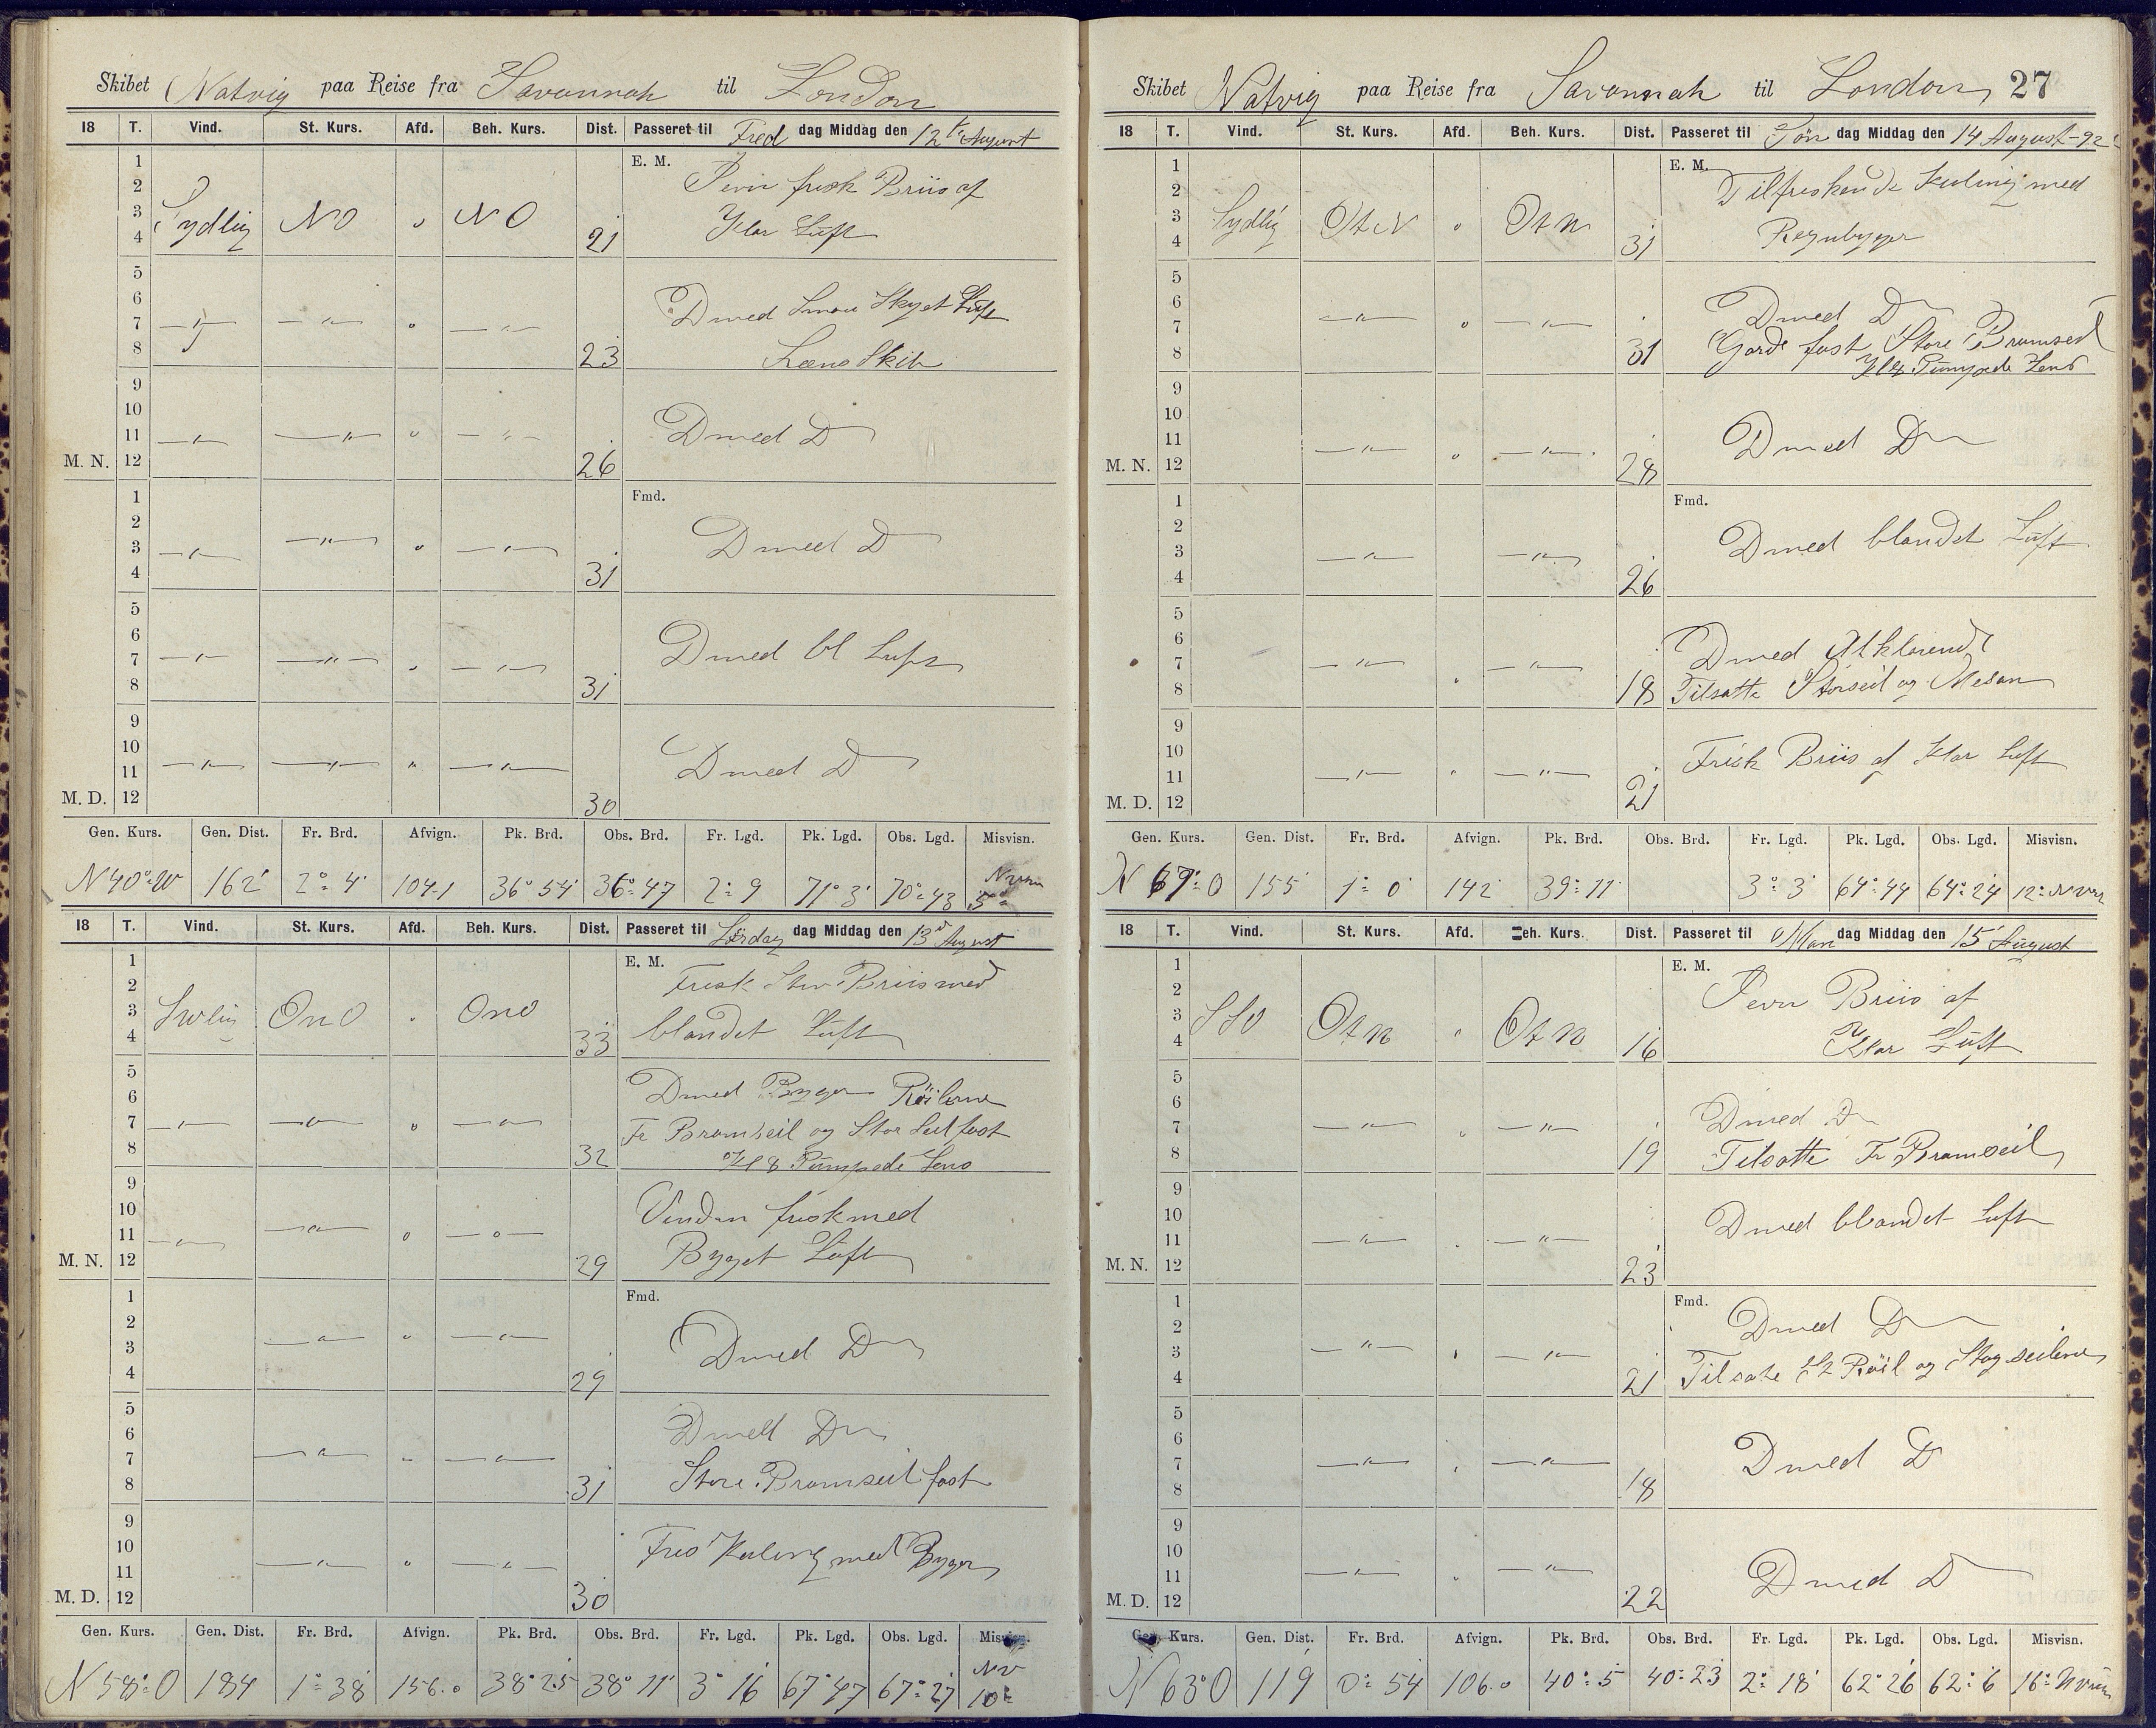 Skibet Natvig paa Reise fra Savannah til London
18 T. Vind. St. Kurs. Afd. Beh. Kurs. Dist. Passeret til Fred dag Middag den 12te August
1 E. M.
2 Jevn frisk Briis af
3 Sydlig NO " NO
4 21 Klar Luft
5
6 Dmed Smaa Skyet Luft
7 —"— —"— " —"—
8 23 Læns Skib
9
10
11 —"— —"— " —"— Dmed D
M. N. 12 26
1 Fmd.
2
3 —"— —"— " —"— Dmed D
4 31
5
6
7 —"— —"— " —"— Dmed bl Luft
8 31
9
10
11 —"— —"— " —"— Dmed D
M. D. 12 30
Gen. Kurs. Gen. Dist. Fr. Brd. Afvign. Pk. Brd. Obs. Brd. Fr. Lgd. Pk. Lgd. Obs. Lgd. Misvisn.
N 40° 162' 2° 4' 104.1 36° 54' 36° 47 2° 9 71° 3' 70° 43 5°
18 T. Vind. St. Kurs. Afd. Beh. Kurs. Dist. Passeret til Lørdag dag Middag den 13d August
1 E. M.
2 Frisk Stiv Briis med
3 Swlig OnO " OnO
4 33 blandet Luft
5
6 Dmed Byger Røilerne
7 —"— —"— " —"— Fr Bramseil og Stor Seil fast
8 32 Kl 8 Pumpede Lens
9
10 Vinden frisk med
11 —"— —"— " —"— Byget Luft
M. N. 12 29
1 Fmd.
2
3 —"— " —"— Dmed D
4 29
5
6 Dmed D
7 —"— " —"—
8 31 Store Bramseil fast
9
10 Kuling med Byger
11 —"— " —"—
M. D. 12 30
Gen. Kurs. Gen. Dist. Fr. Brd. Afvign. Pk. Brd. Obs. Brd. Fr. Lgd. Pk. Lgd. Obs. Lgd. Misvisn.
N 58° O 184 1° 38' 156.0 38° 25 38° 11' 3° 16 67° 47 67° 27 NV 10°
Skibet Natvig paa Reise fra Savannah til London 27
18 T. Vind. St. Kurs. Afd. Beh. Kurs. Dist. Passeret til Søn dag Middag den 14 August - 92
1 E. M.
2 Tilfriskende Kuling med
3 Sydlig OtN " OtN
4 31 Regnbyger
5
6 Dmed D
7 —"— " —"— Gjorde fast Store Bramseil
8 31 Kl 8 Pumpede Lens
9
10
11 —"— " —"— Dmed D
M. N. 12 28
1 Fmd.
2 Dmed blandet Luft
3 —"— —"—
4 26
5
6 Dmed Atklarende
7 —"— " —"—
8 18 Tilsatte Storseil og Mesan
9
10 Frisk Briis af Klar Luft
11 —"— " —"—
M. D. 12 21
Gen. Kurs. Gen. Dist. Fr. Brd. Afvign. Pk. Brd. Obs. Brd. Fr. Lgd. Pk. Lgd. Obs. Lgd. Misvisn.
N 67° O 155 1° 0' 142 39° 11 3° 3' 64° 44 64° 24 12°
18 T. Vind. St. Kurs. Afd. Beh. Kurs. Dist. Passeret til Man dag Middag den 15 August
1 E. M.
2 Jevn Briis af
3 SSO OtN " OtN
4 16 Klar Luft
5
6 Dmed D
7 —"— " —"—
8 19 Tilsatte Fr Bramseil
9
10 Dmed blandet Luft
11 —"— " —"—
M. N. 12 23
1 Fmd.
2 Dmed D
3 —"— " —"—
4 21 Tilsatte St Røil og Stagseilene
5
6
7 —"— " —"— Dmed D
8 18
9
10
11 —"— " —"— Dmed D
M. D. 12 22
Gen. Kurs. Gen. Dist. Fr. Brd. Afvign. Pk. Brd. Obs. Brd. Fr. Lgd. Pk. Lgd. Obs. Lgd. Misvisn.
N 63° O 119 0° 54' 106.0 40° 5 40° 23 2° 18' 62° 26 62° 6 16°